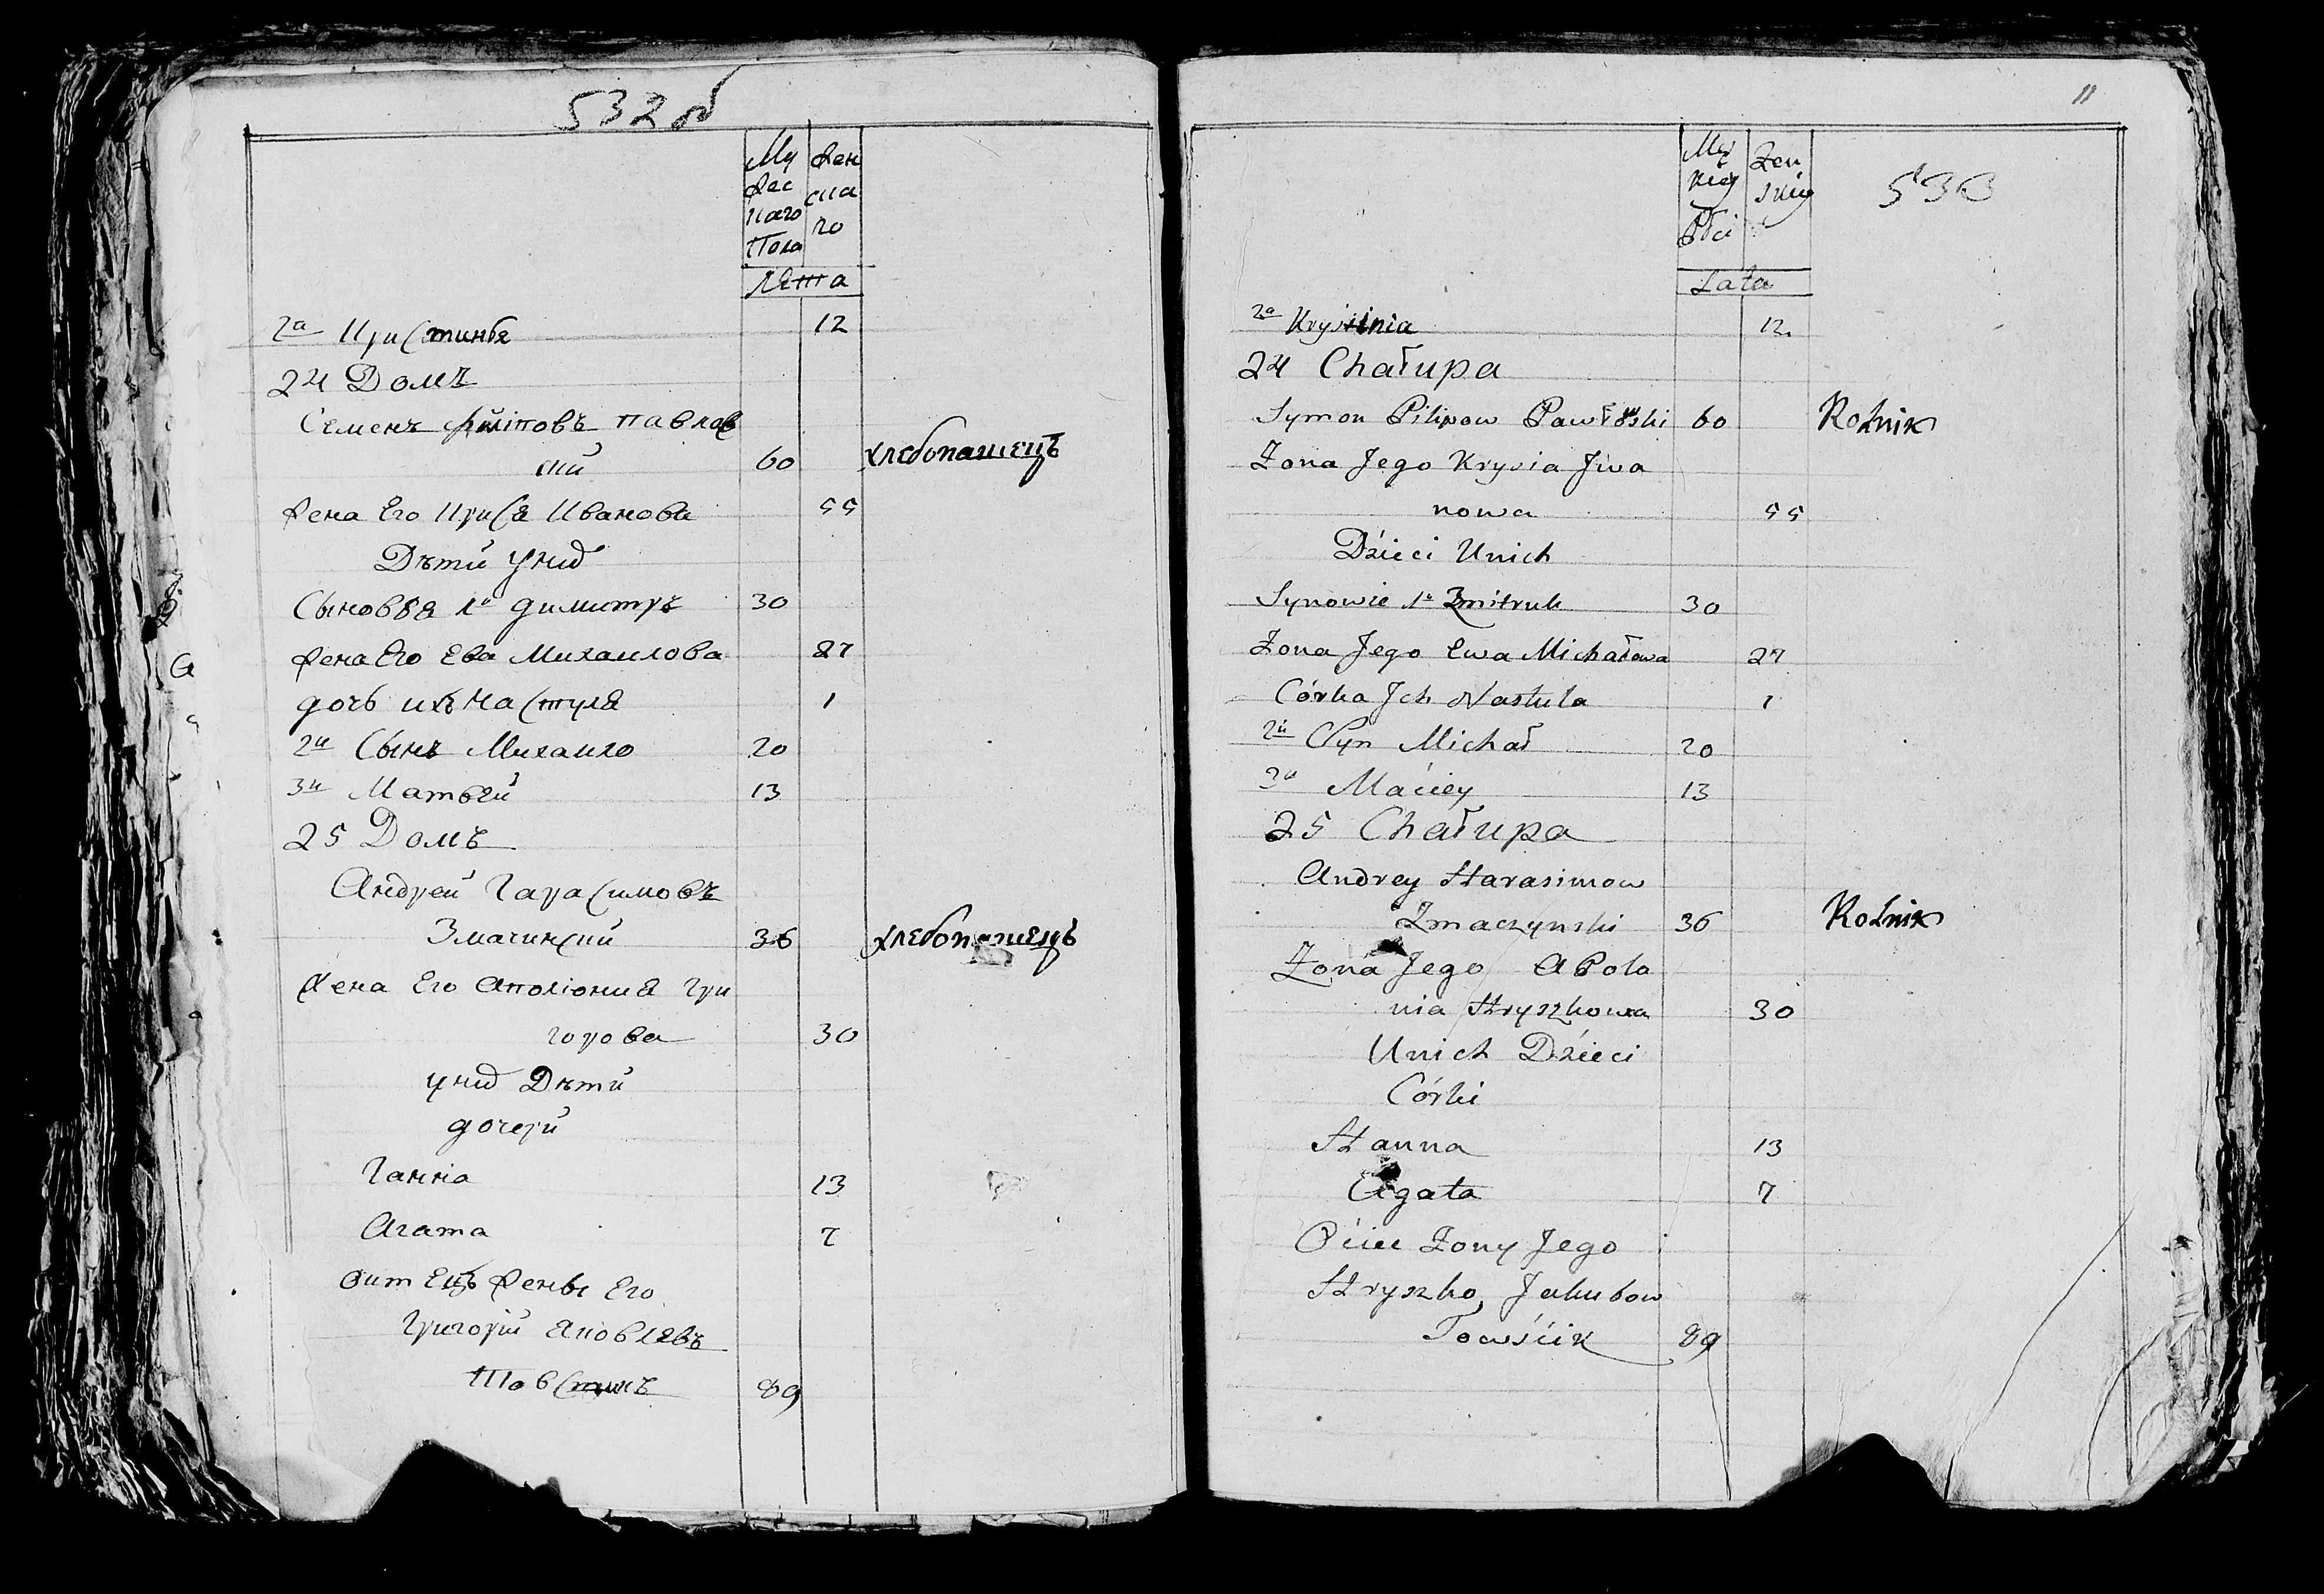 532 об
Му
жес
каго
Пола
Жен
ска
го
Лѣта
2а Кристинья 12
24 Домъ
Семенъ Филиповъ Павлов
ский 60 хлебопашецъ
Жена Его Крися Иванова 55
Дѣти у них
Сыновья 1й Димитръ 30
Жена Его Ева Михаилова 27
дочь ихъ Настуля 1
2й Сынъ Михаило 20
3й Матвей 13
25 Домъ
Андрей Гарасимовъ
Змачинский 36 хлебопашецъ
Жена Его Аполiония Гри
горова 30
у них Дѣти
дочери
Ганна 13
Агата 7
Отецъ Жены Его
Григорий Яковлевъ
Товстикъ 89
11
533
Męz
kiey
Płci
Żeń
skiey
Lata
2a Krystinia 12
24 Chałupa
Symon Pilipow Pawłowski 60 Rolnik
Żona Jego Krysia Jwa
nowa 55
Dzieci Unich
Synowie 1y Zmitruk 30
Żona Jego Ewa Michałowa 27
Córka Jch Nastula 1
2i Syn Michał 20
3i Maciey 13
25 Chałupa
Andrey Harasimow
Zmaczynski 36 Rolnik
Żona Jego APolo
nia Hryszkowa 30
Unich Dzieci
Córki
Hanna 13
Agata 7
Ociec Żony Jego
Hryszko Jakubow
Towścik 89